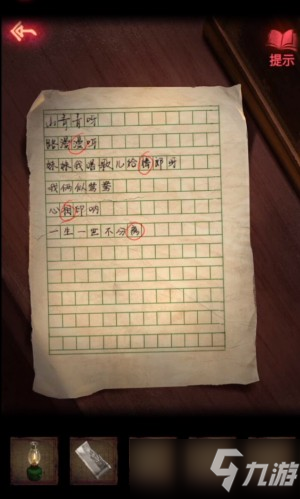 提示
山青青呀
路漫漫呀
妹妹我唱歌儿给情郎呀
我俩似鸳鸯
心相印呐
一生一世不分离
九游